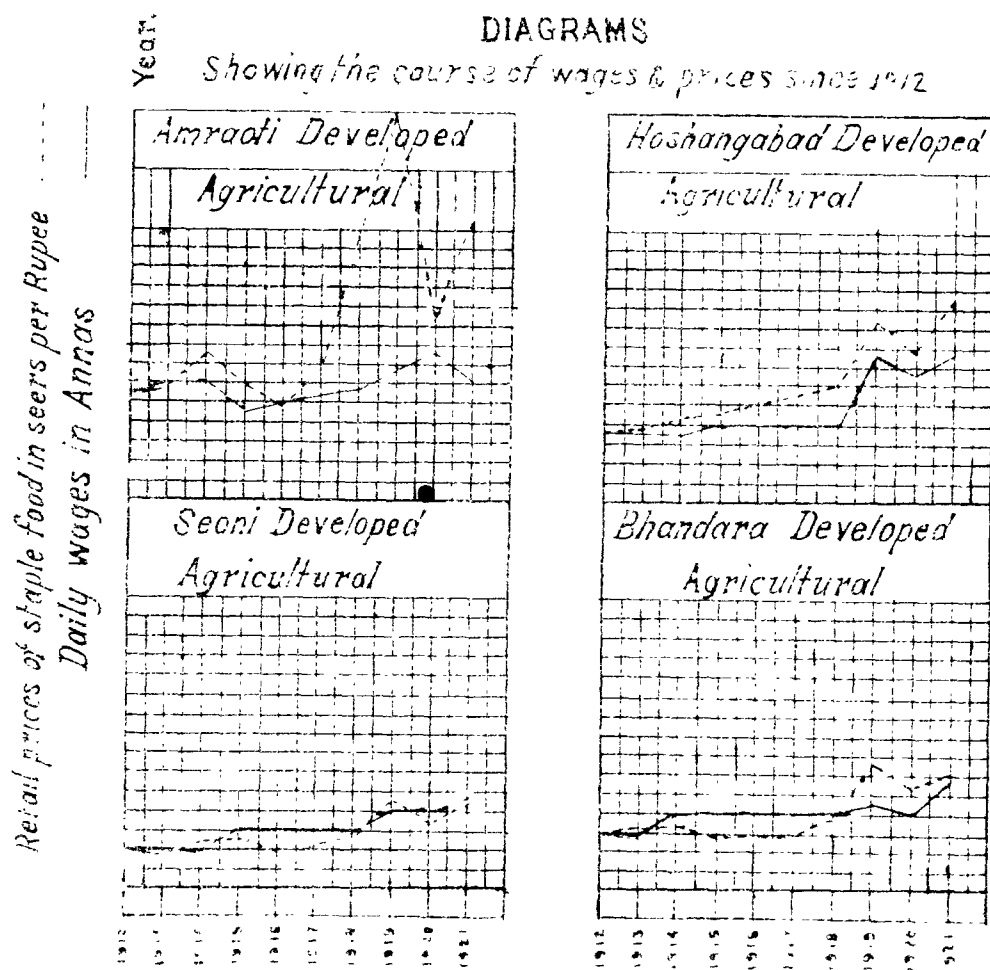 DIAGRAMS
Showing the course of wages & prices since 1912
Year.
Retail prices of staple food in seers per Rupee
Daily wages in Annas
Amraoti Developed
Agricultural
Hoshangabad Developed
Agricultural
Seoni Developed
Agricultural
Bhandara Developed
Agricultural
1912
1915
1917
1918
1919
1920
1921
1912
1913
1914
1915
1916
1917
1918
1919
1920
1921